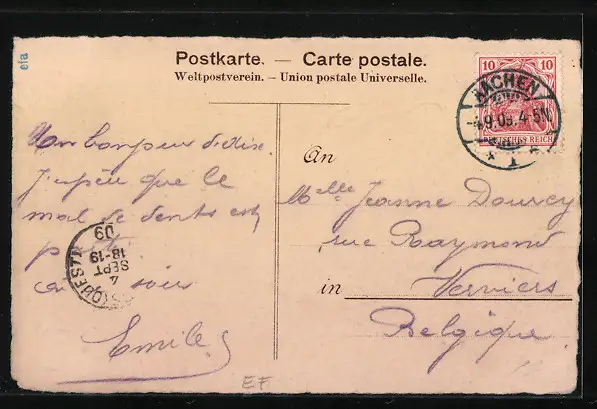 Postkarte. — Carte postale.
Weltpostverein. – Union postale Universelle.
10 10
AACHEN
-4.9.09.4-5N.
DEUTSCHES REICH
* 1 *
efa
Un bonjour d'Aix.
J'espère que le
mal de dents est
parti
soir
Emile
(OUEST)
4
SEPT
18-19
09
An
Melle Jeanne Dourcy
rue Raymond
in Verviers
Belgique
EF